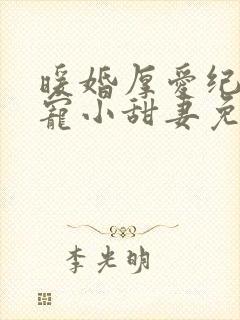 暖婚厚爱纪
寵小甜妻免
李光明